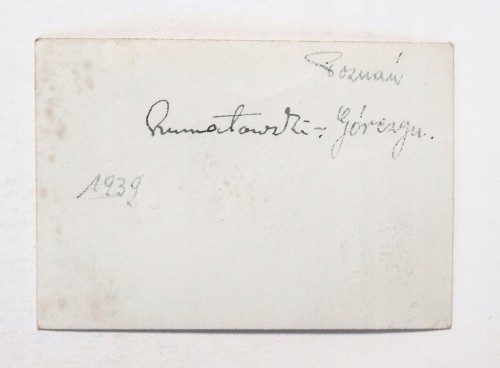 Poznań
Rumatowski - Górczyn.
1939